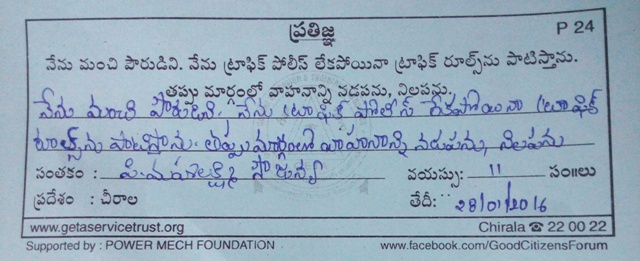 ప్రతిజ్ఞ P 24
నేను మంచి పౌరుడిని. నేను ట్రాఫిక్ పోలీస్ లేకపోయినా ట్రాఫిక్ రూల్స్‌ను పాటిస్తాను.
తప్పు మార్గంలో వాహనాన్ని నడపను, నిలపను.
నేను మంచి పౌరుడిని, నేను ట్రాఫిక్ పోలీస్ లేకపోయినా ట్రాఫిక్
రూల్స్‌ను పాటిస్తాను. తప్పు మార్గంలో వాహనాన్ని నడుపను, నిలపను
సంతకం : పి.మహాలక్ష్మి వయస్సు: 11 సం॥లు
ప్రదేశం : చీరాల తేదీ: 28/01/2016
www.getaservicetrust.org Chirala ☎ 22 00 22
Supported by : POWER MECH FOUNDATION www.facebook.com/GoodCitizensForum